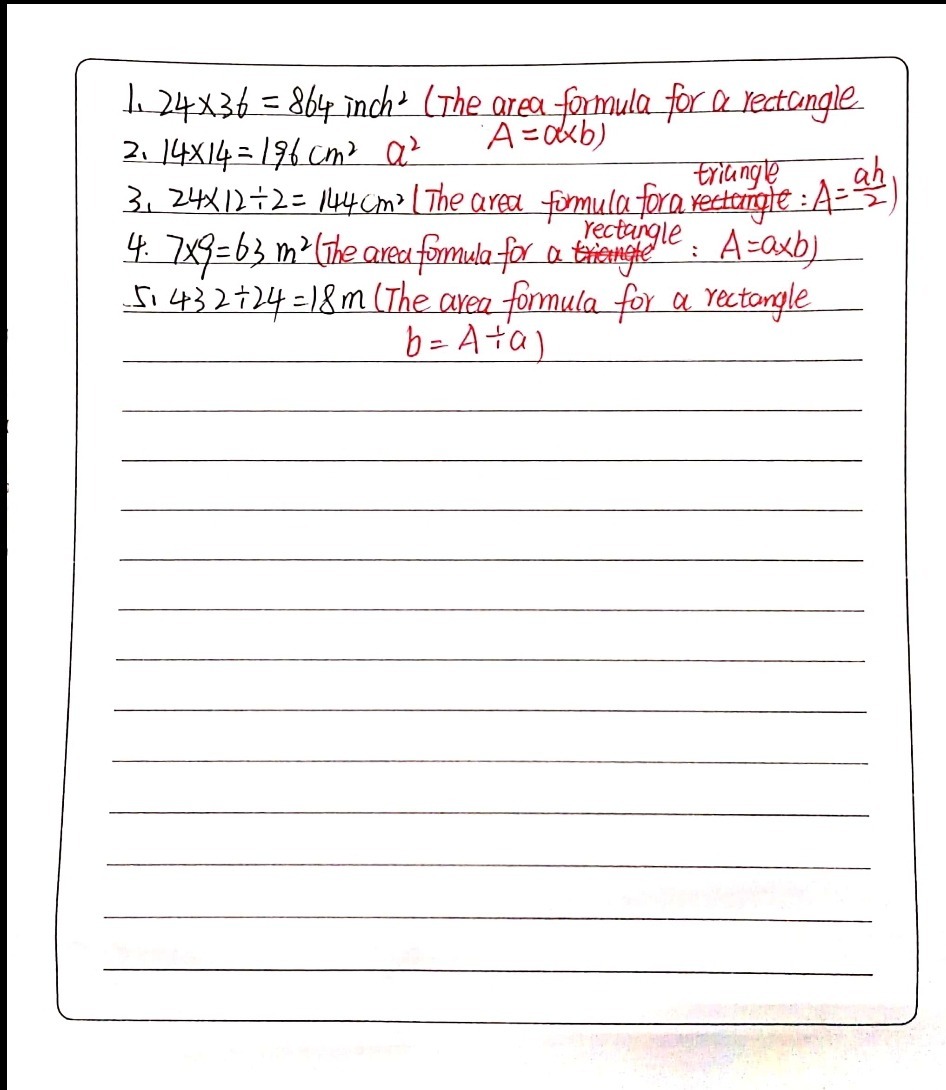 1. 24×36 = 864 inch² (The area formula for a rectangle
A = a×b)
2. 14×14 = 196 cm² a²
triangle
3. 24×12÷2 = 144cm² (The area formula for a rectangle : A = ah/2)
rectangle
4. 7×9=63 m² (The area formula for a triangle : A=a×b)
5. 432÷24 =18m (The area formula for a rectangle
b = A÷a)